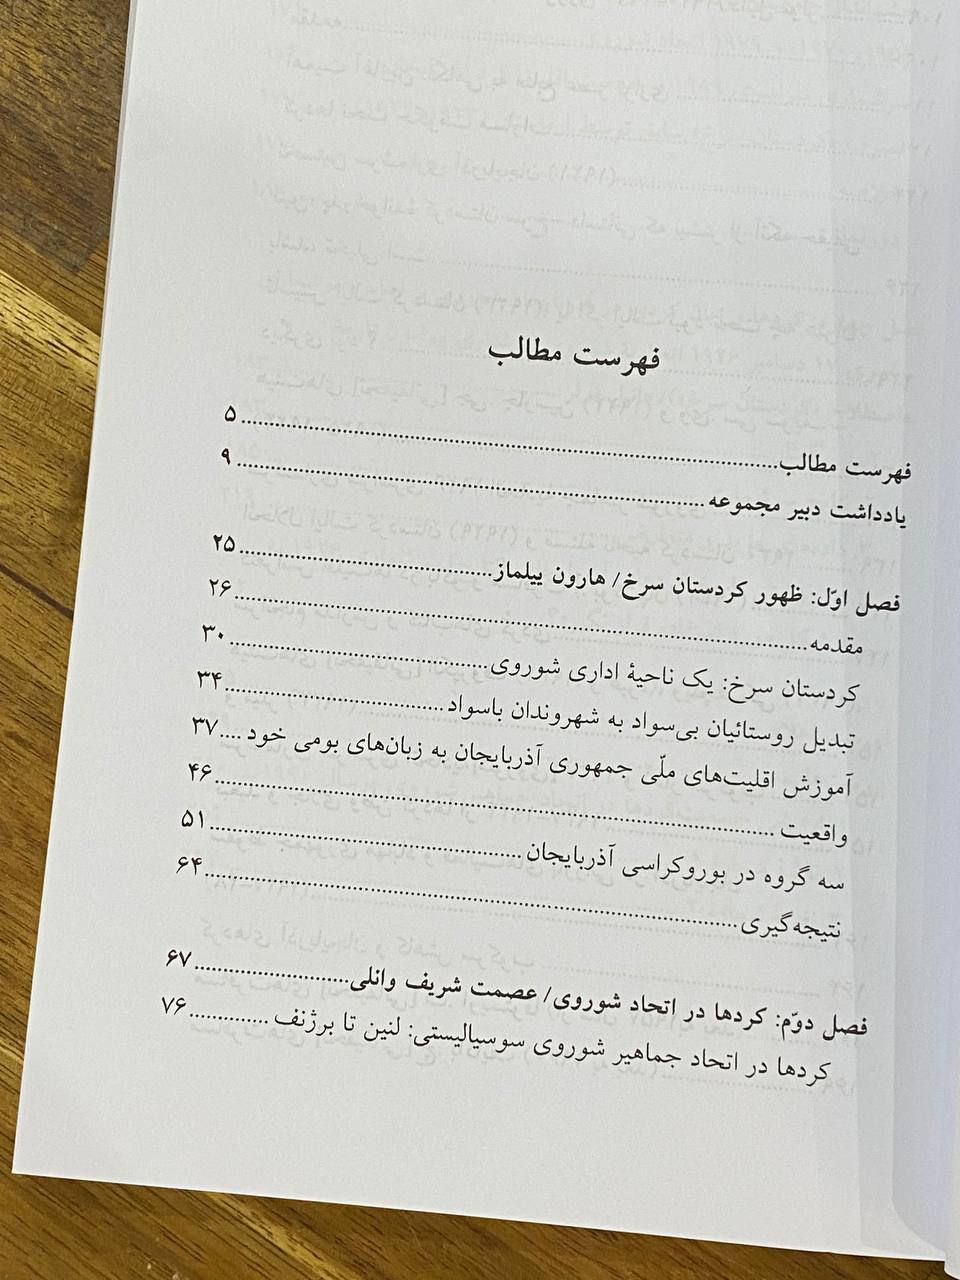 فهرست مطالب
فهرست مطالب................................................................۵
یادداشت دبیر مجموعه................................................................۹
فصل اوّل: ظهور کردستان سرخ/ هارون ییلماز................................۲۵
مقدمه................................................................۲۶
کردستان سرخ: یک ناحیهٔ اداری شوروی................................۳۰
تبدیل روستائیان بی‌سواد به شهروندان باسواد................................۳۴
آموزش اقلیت‌های ملّی جمهوری آذربایجان به زبان‌های بومی خود....۳۷
واقعیت................................................................۴۶
سه گروه در بوروکراسی آذربایجان................................۵۱
نتیجه‌گیری................................................................۶۴
فصل دوّم: کردها در اتحاد شوروی/ عصمت شریف وانلی....................۶۷
کردها در اتحاد جماهیر شوروی سوسیالیستی: لنین تا برژنف.............۷۶